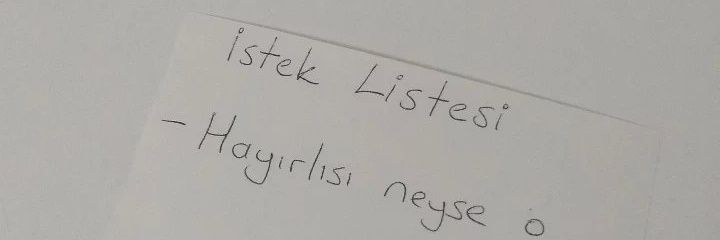 istek Listesi
- Hayırlısı neyse o